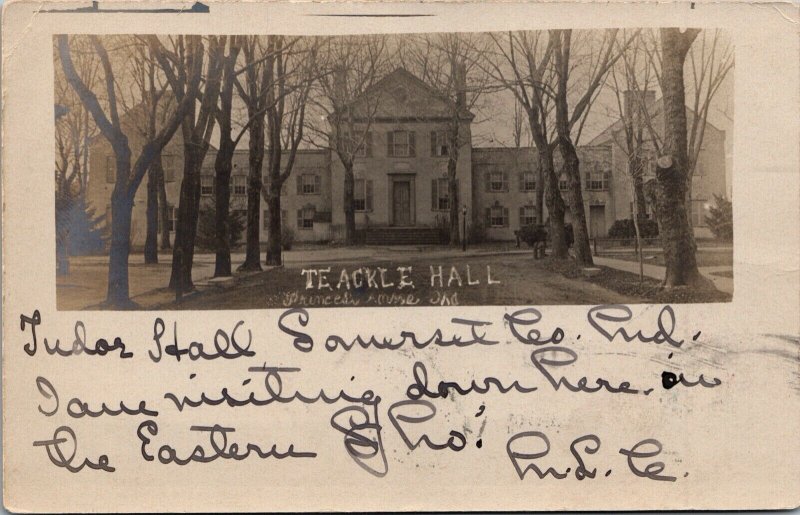 TEACKLE HALL
Princess Anne Md
Tudor Hall Somerset Co. Md.
I am visiting down here. on
the Eastern Sho!
M. L. C.